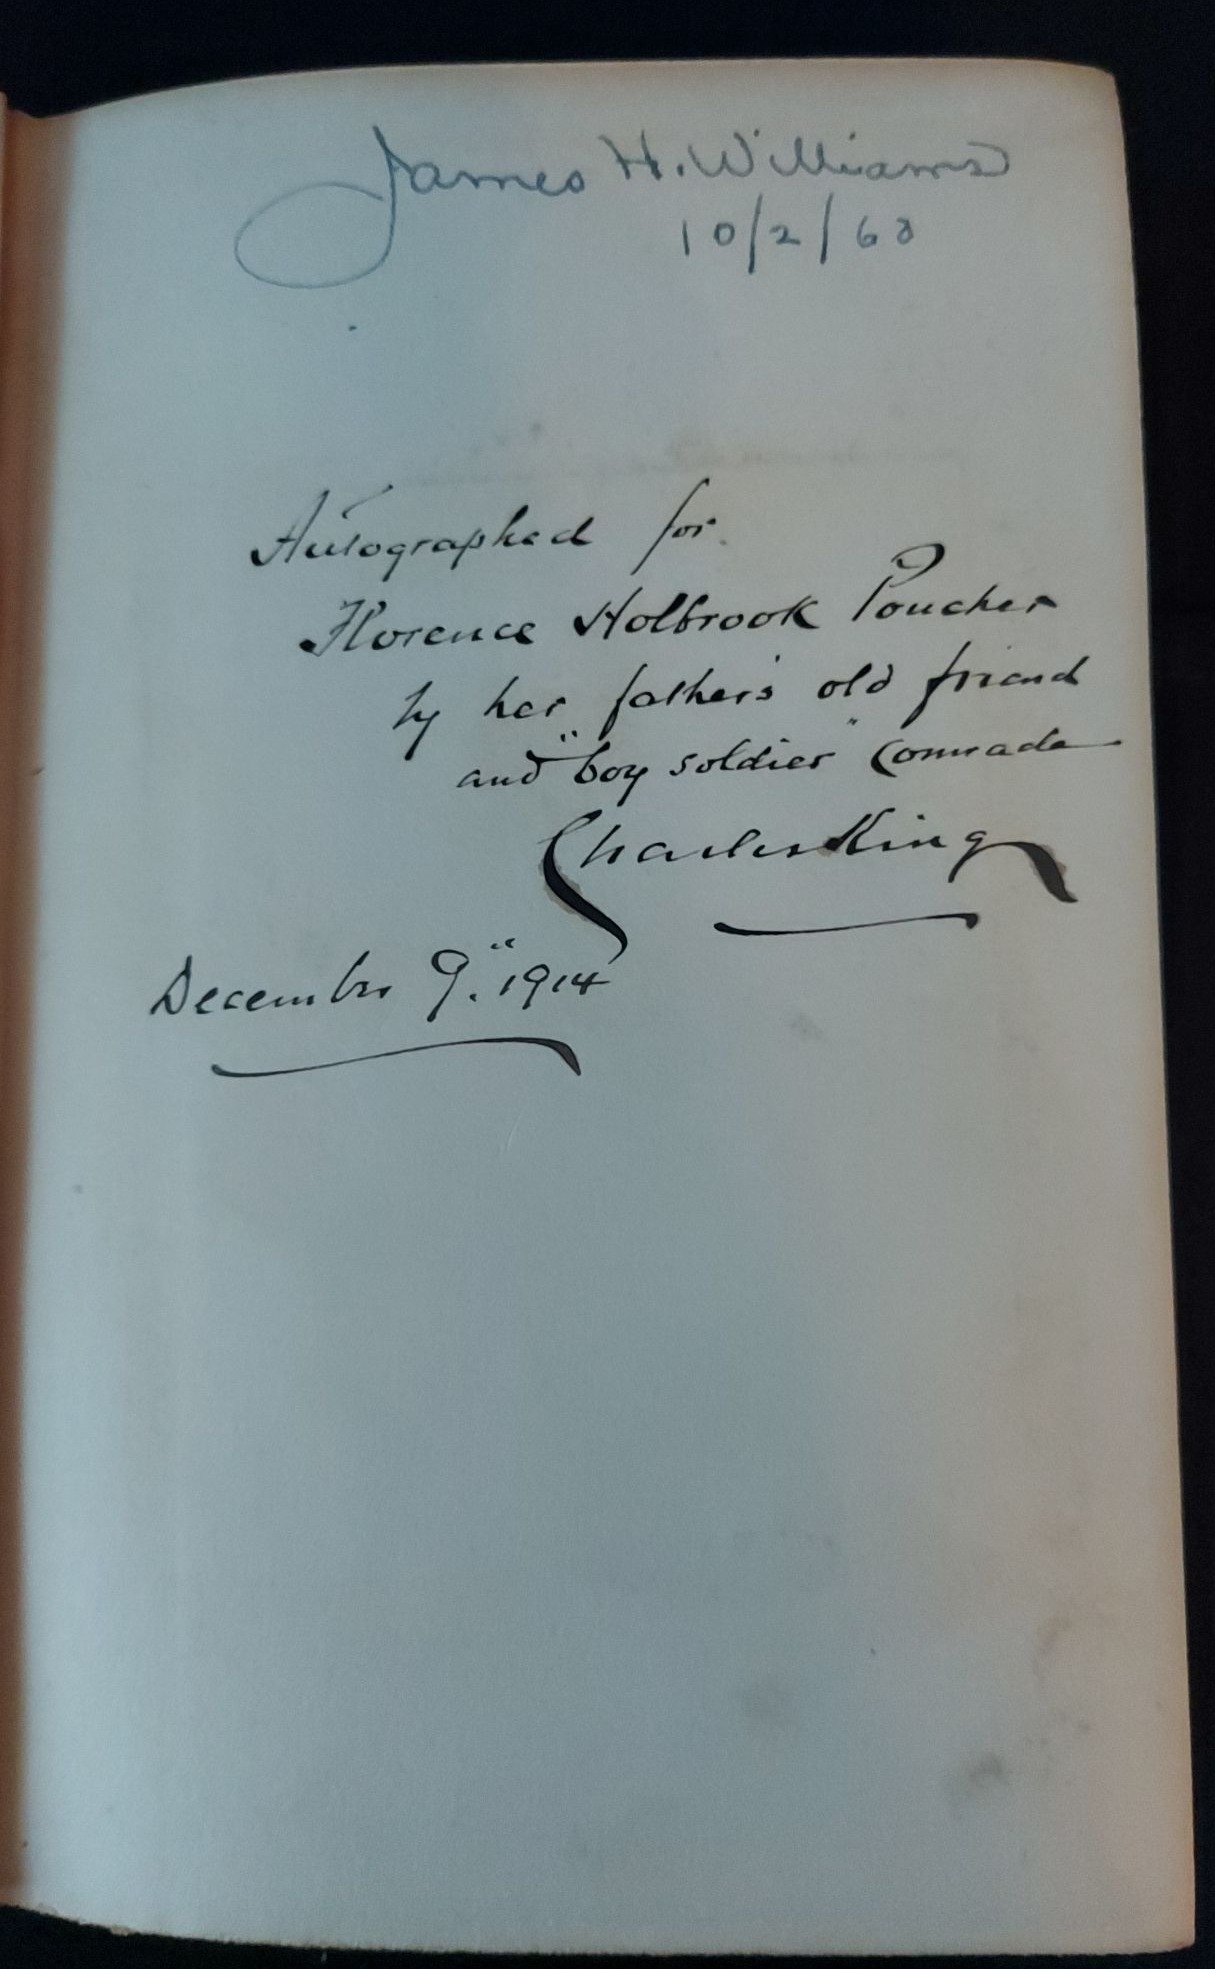 James H. Williams
10/2/68
Autographed for
Florence Holbrook Poucher
by her father's old friend
and "boy soldier" comrade
Charles King
December 9." 1914